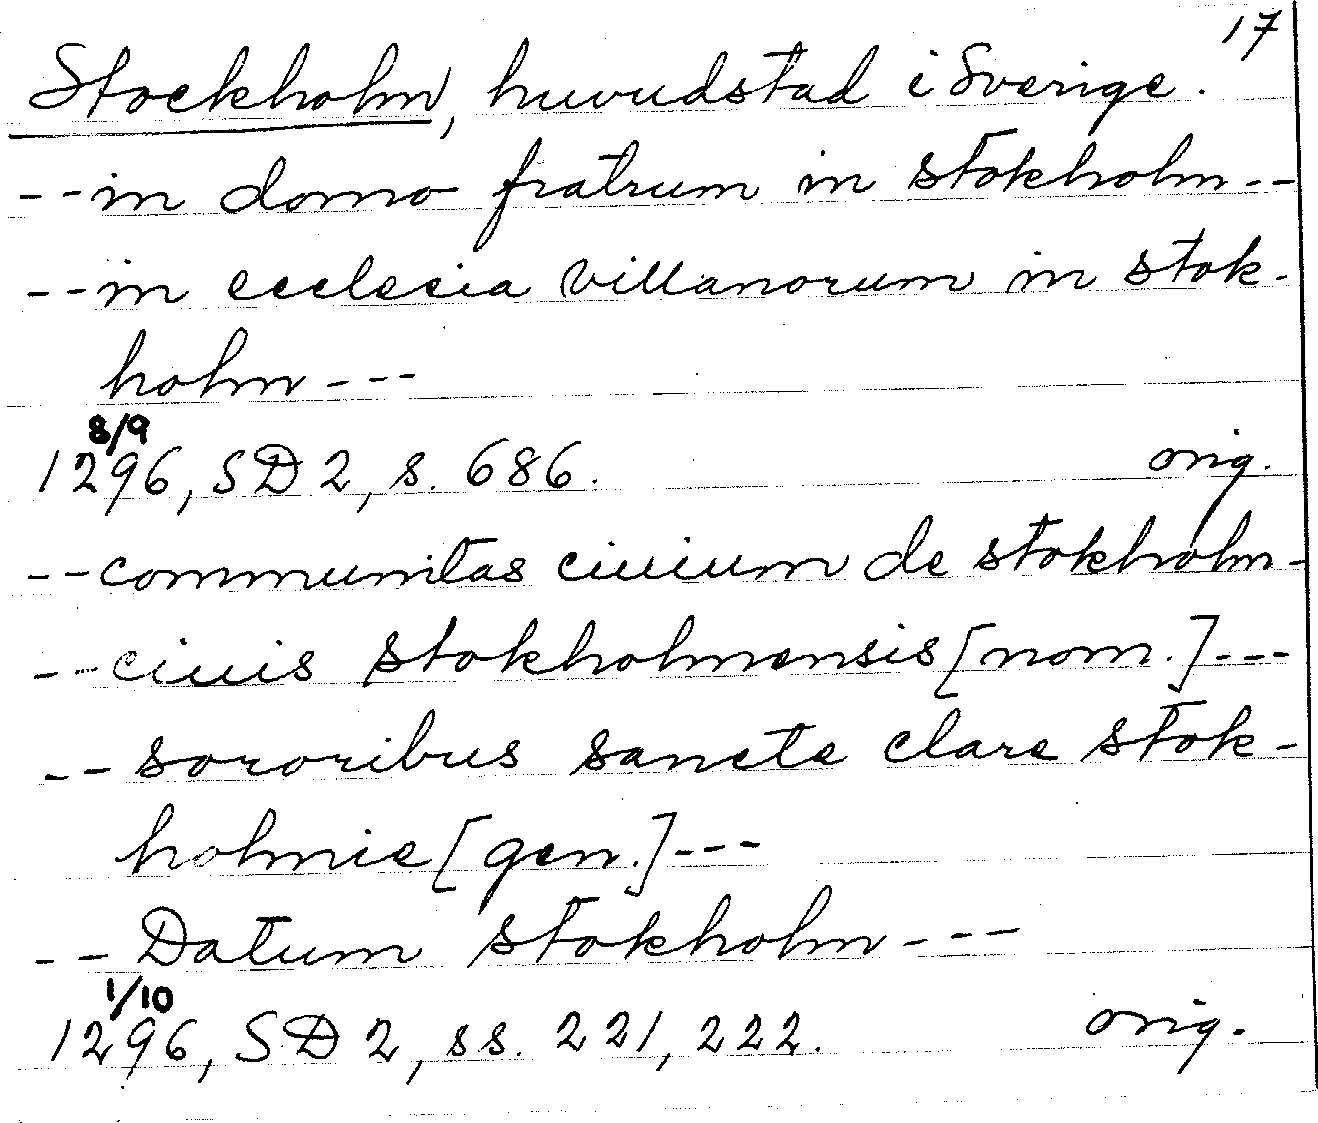 17
Stockholm, huvudstad i Sverige.
--in domo fratrum in stokholm--
--in ecclesia villanorum in stok-
holm---
8/9
1296, SD 2, s. 686. orig.
--communitas ciuium de stokholm-
--ciuis stokholmensis [nom.]---
--sororibus sancte clare stok-
holmie [gen.]---
--Datum stokholm---
1/10
1296, SD 2, ss. 221, 222. orig.